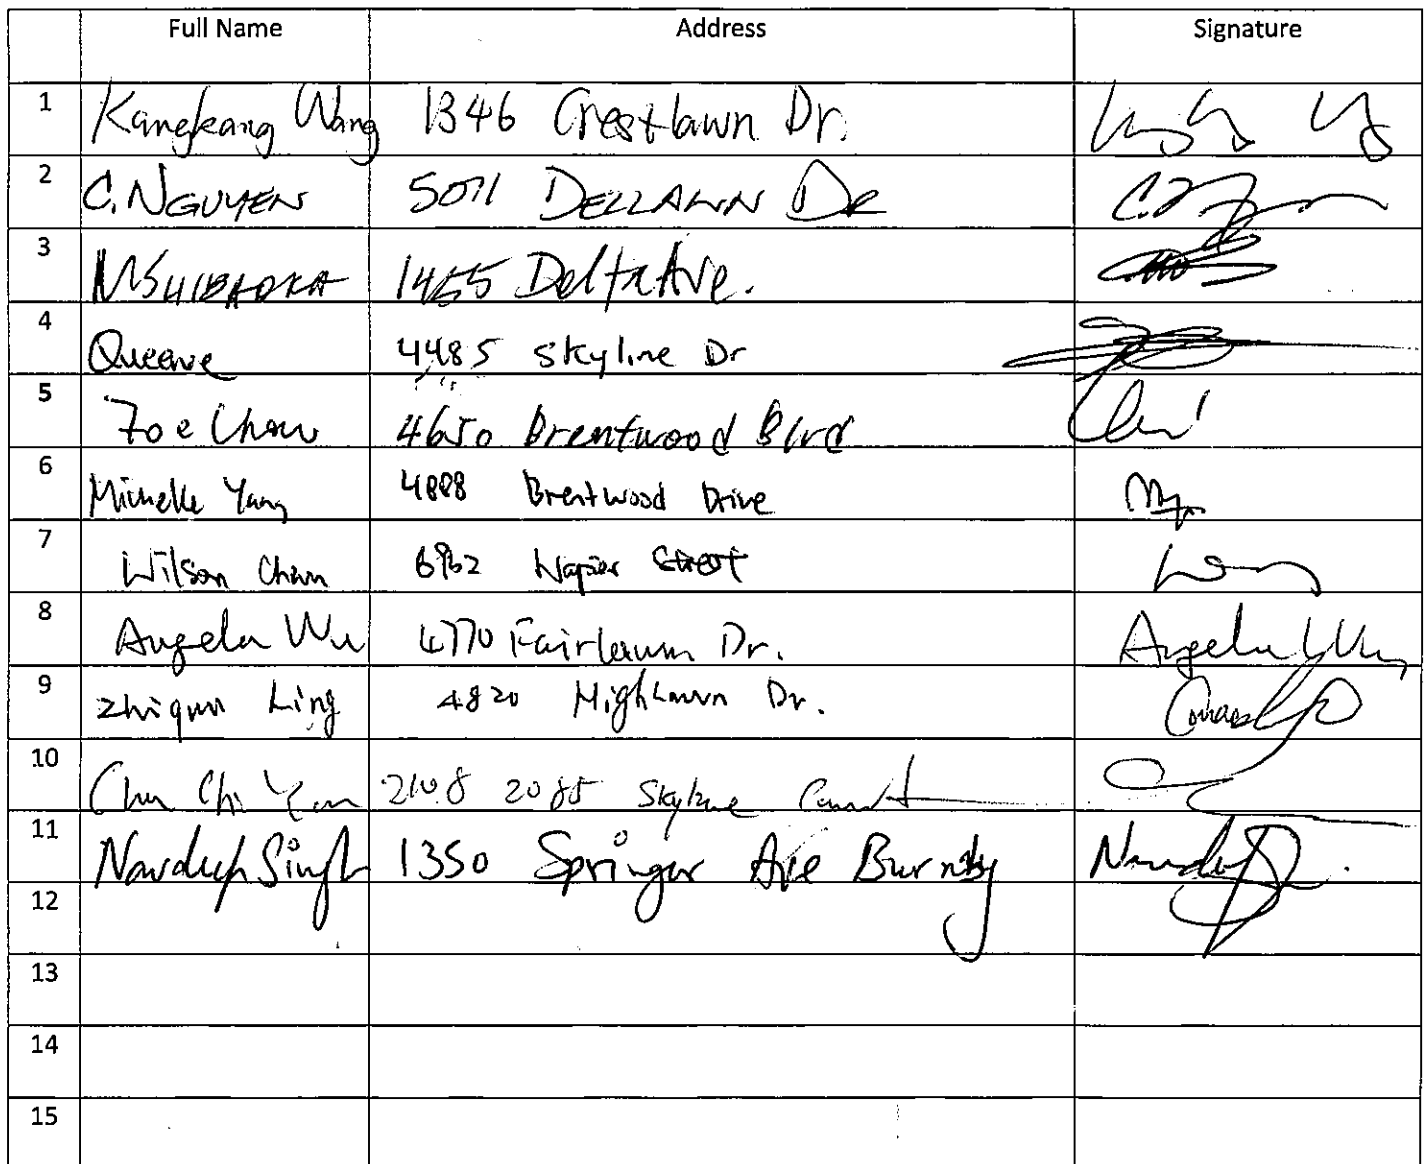 Full Name Address Signature
1 Kangkang Wang 1346 Crestlawn Dr.
2 C. NGUYEN 5011 DELLAWN DR
3 M SHIBAOKA 1455 Delta Ave.
4 Queenie 4485 Skyline Dr
5 Zoe Chow 4650 Brentwood Blvd
6 Michelle Yang 4888 Brentwood Drive
7 Wilson Chan Napier Street
8 Angela Wu 4770 Fairlawn Dr. Angela Wu
9 Zhiqun Ling 4820 Highlawn Dr.
10 Chi 2108 2085 Skyline Court
11 Nardeep Singh 1350 Springer Ave Burnaby
12
13
14
15